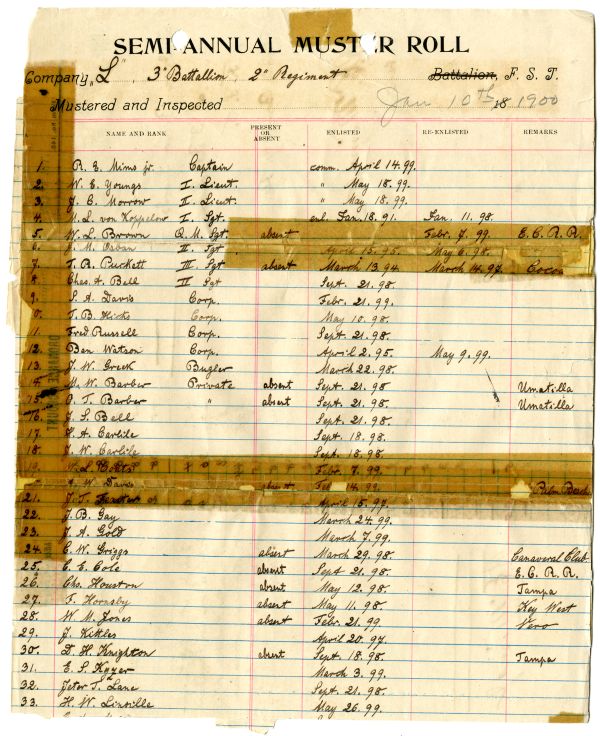 SEMI-ANNUAL MUSTER ROLL
Company "L" 3" Battallion, 2" Regiment Battalion, F. S. T.
Mustered and Inspected Jan 10th 18 1900
NAME AND RANK PRESENT OR ABSENT ENLISTED RE-ENLISTED REMARKS
1. R. E. Mims jr. Captain comm. April 14. 99.
2. W. E. Youngs I. Lieut. " May 18. 99.
3. J. E. Morrow II. Lieut. " May 18. 99.
4. M. L. von Koppelow I. Sgt. enl. Jan. 18. 91. Jan. 11. 98.
5. W. L. Brown Q. M. Sgt. absent Febr. 7. 99. E. C. R. R.
6. J. M. Osban II Sgt April 15. 95. May 6. 98.
7. T. R. Puckett III Sgt absent March 13. 94. March 14. 97. Cocoa
8. Chas. A. Bell Sgt Sept. 21. 98.
9. S. A. Davis Corp. Febr. 21. 99.
T. B. Hicks Corp. May 10. 98.
11. Fred Russell Corp. Sept. 21. 98.
12. Ben Watson Corp. April 2. 95. May 9. 99.
13. J. W. Greek Bugler March 22. 98.
14. M. W. Barber Private absent Sept. 21. 98 Umatilla
15. O. T. Barber " absent Sept. 21. 98. Umatilla
16. J. S. Bell Sept. 21. 98.
17. H. A. Carlile Sept. 18. 98.
18. J. W. Carlile Sept. 18. 98.
19. W. L. Febr. 7. 99.
W. Davis absent Feb 14. 99. Palm Beach
21. J. T. April 15. 97.
22. J. B. Gay March 24. 99.
23. J. A. Gold March 7. 99.
24. C. W. Griggs absent March 29. 98. Canaveral Club.
25. C. E. Cole absent Sept 21. 98. E. C. R. R.
26. Chs. Houston absent May 12. 98. Tampa
27. F. Hornsby absent May 11. 98. Key West
28. W. M. Jones absent Febr. 21. 99. Vero
29. J. Kittles April 20. 97.
30. D. H. Knighton absent Sept. 18. 98. Tampa
31. E. S. Kyzer March 3. 99.
32. Peter S. Lane Sept. 21. 98.
33. H. W. Linville May 26. 99.